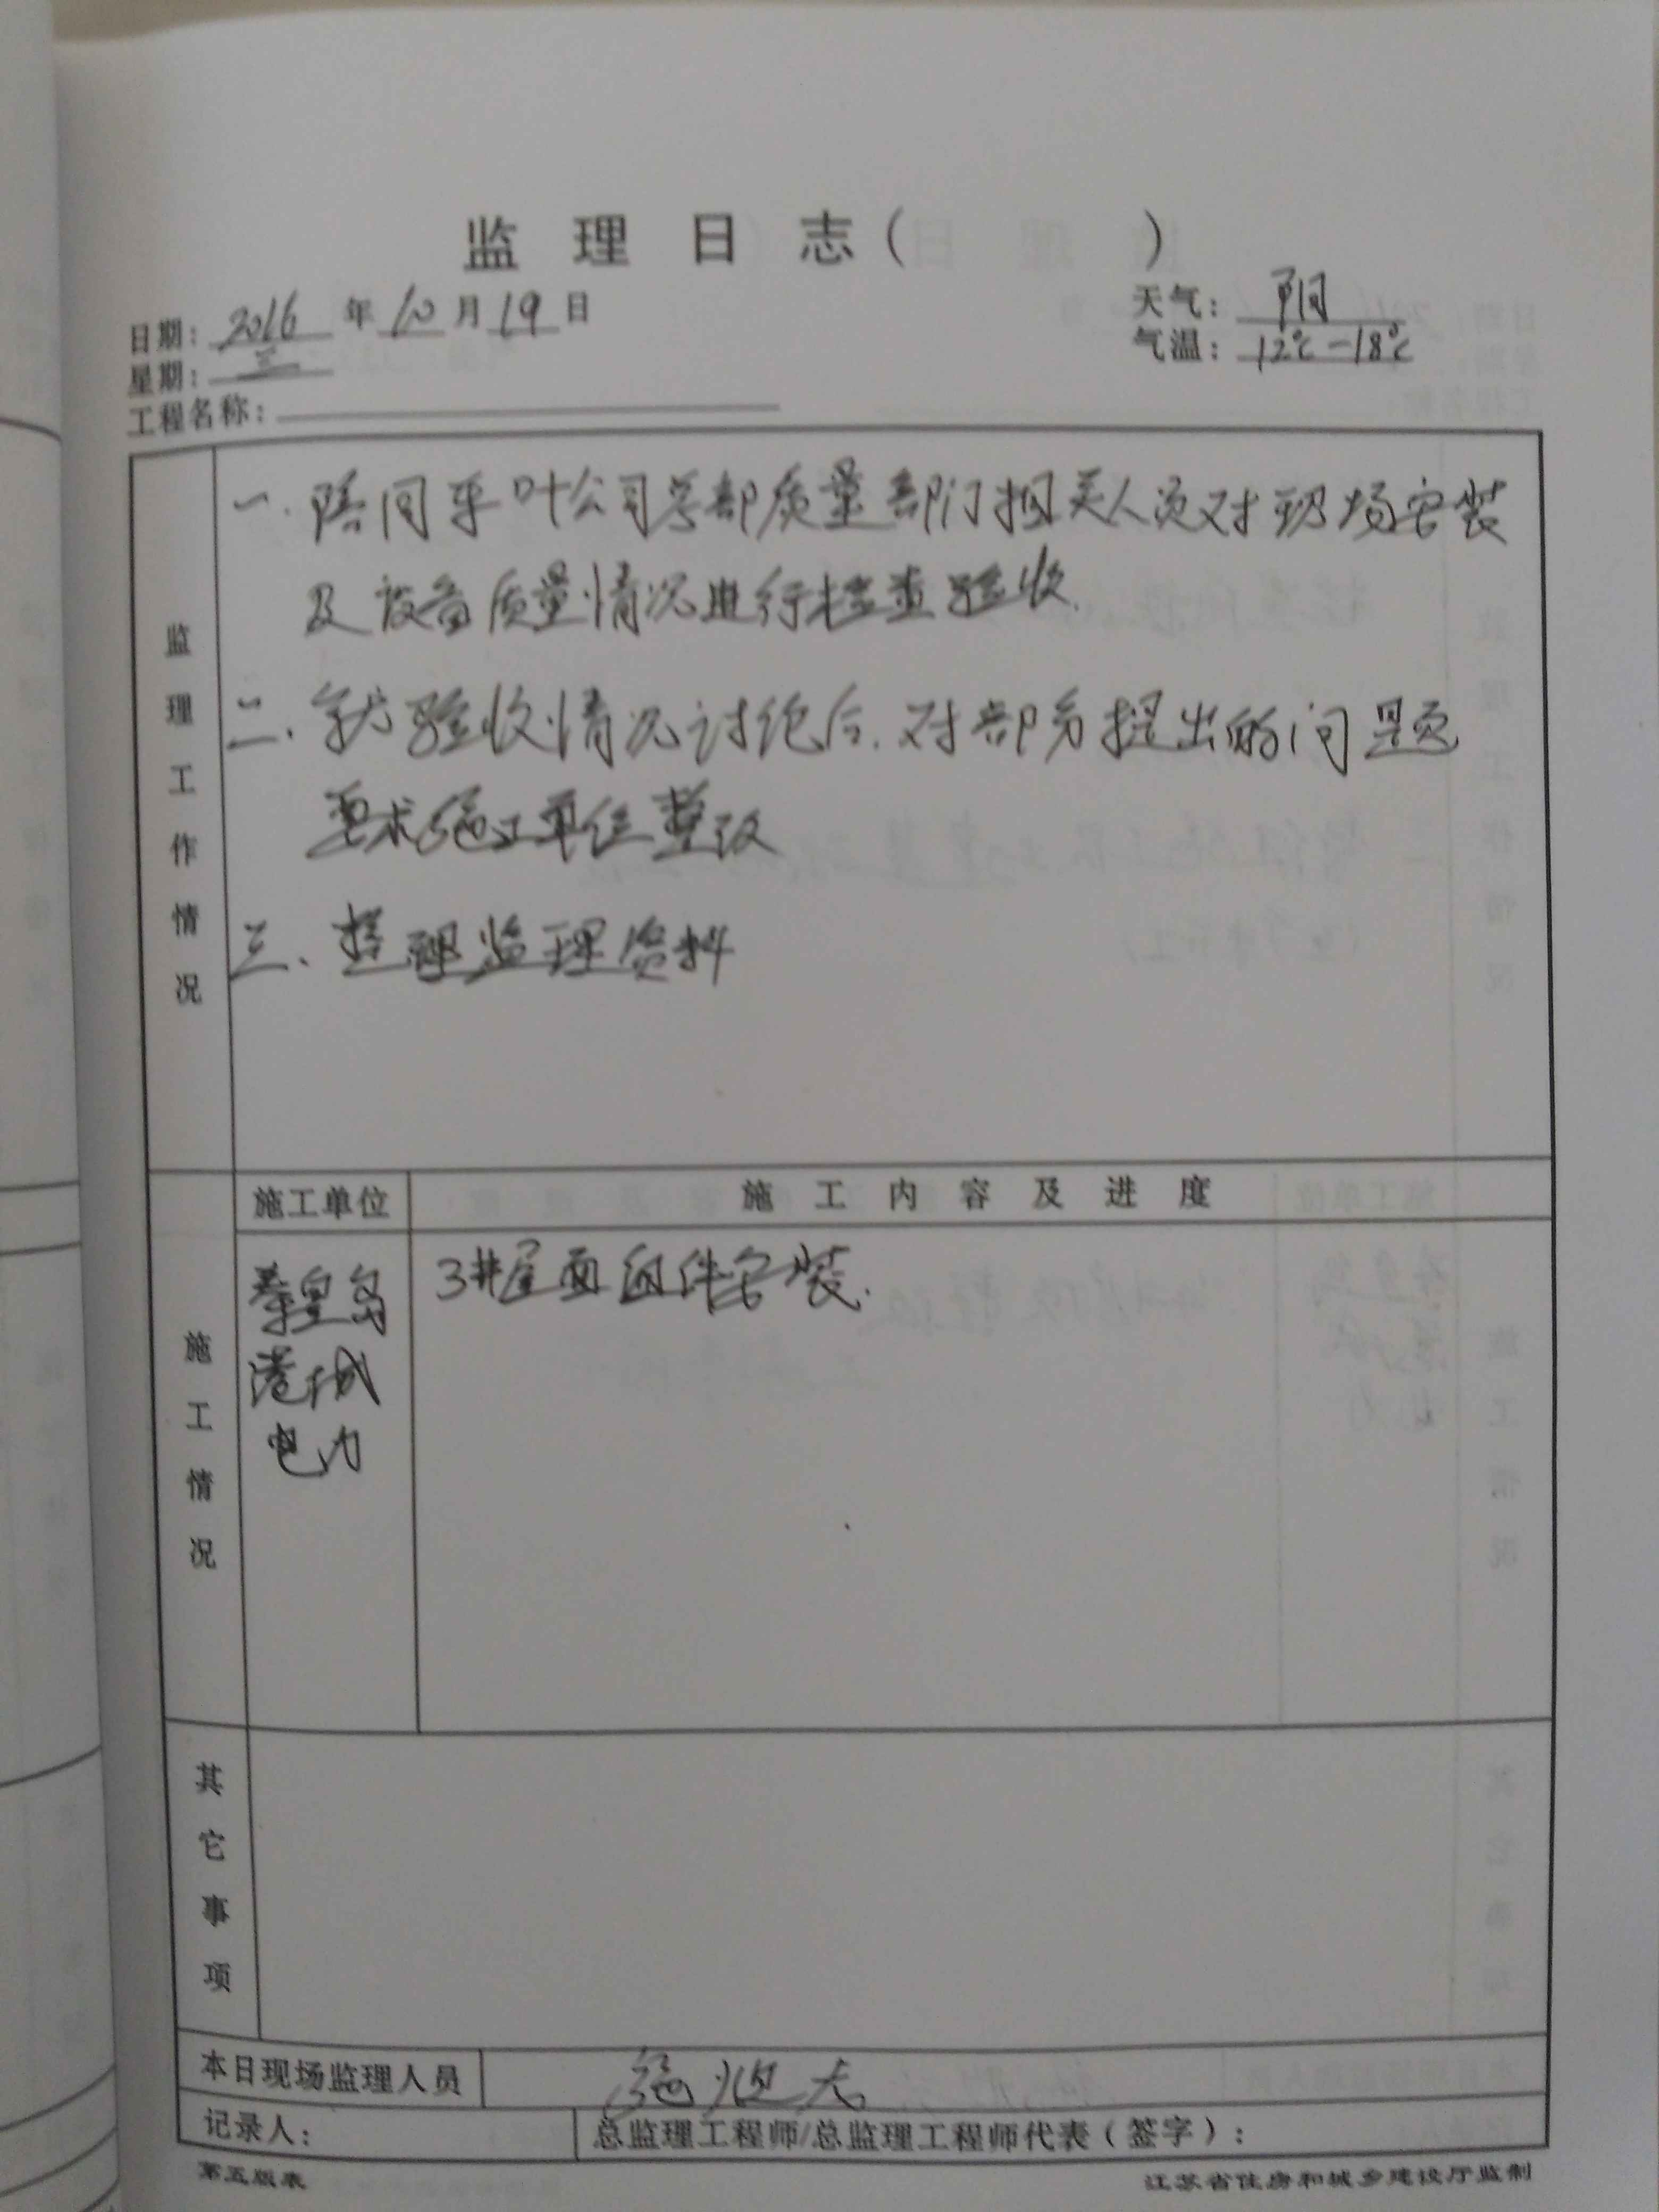 监理日志(　　)
日期：2016年10月19日
天气：阴
星期：三
气温：12℃-18℃
工程名称：
监理工作情况
一.陪同 叶公司 部质量部门相关人员对现场安装
及设备质量情况进行检查验收.
二.就验收情况讨论后.对部分提出的问题
要求施工单位整改
三、整理监理资料
施工单位
施工内容及进度
施工情况
秦皇岛
港城
电力
3#屋面组件安装.
其它事项
本日现场监理人员
记录人：
总监理工程师/总监理工程师代表（签字）：
第五版表
江苏省住房和城乡建设厅监制